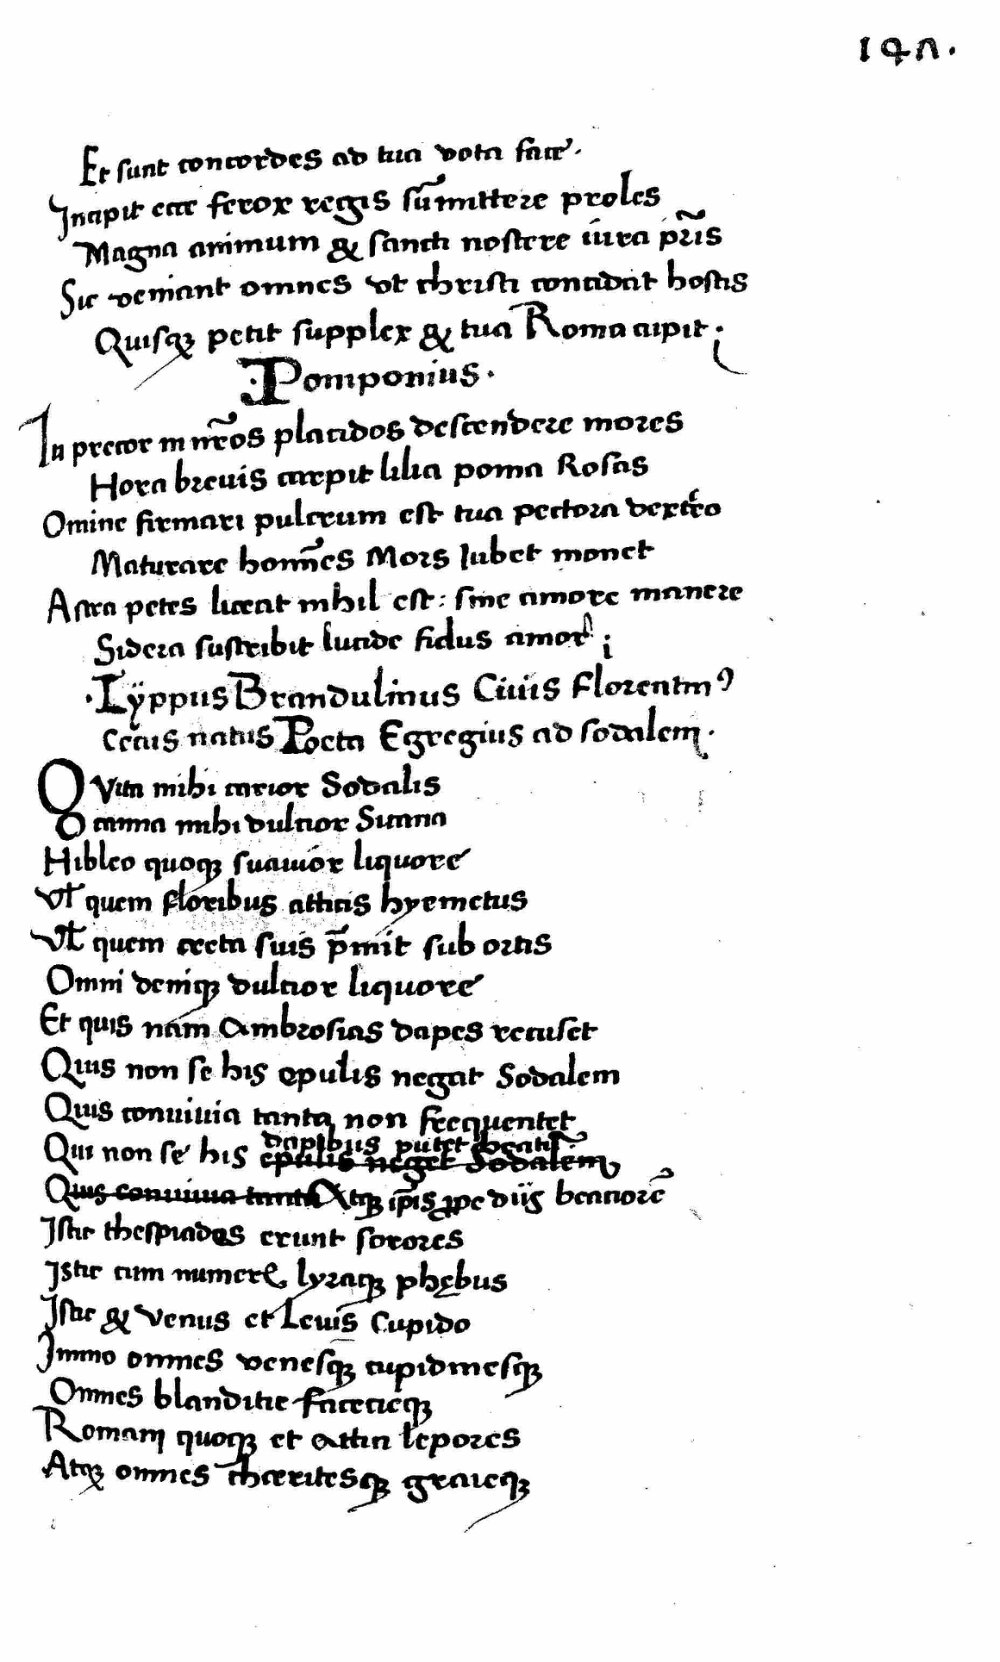 147.
Et sunt concordes ad tua vota face.
Incipit ecce ferox regis su͞mittere proles
Magna animum & sancti nostere iura pr͞is
Sic veniant omnes ut christi concidat hostis
Quisqꝫ petit supplex & tua Roma cipit.
.Pomponius.
In precor in nr͞os placidos descendere mores
Hora brevis carpit lilia poma Rosas
Omine firmari pulcrum est tua pectora dextro
Maturare hom͞es Mors Iubet monet
Astra petes liceat nihil est: sine amore manere
Sidera sustribit lucide fidus amor;
.Lÿppus Brandulinus Civis Florentinꝰ
Cecus natus Poeta Egregius ad sodalem.
O Vita mihi carior Sodalis
O canna mihi dulcior Sicana
Hibleo quoqꝫ suavior liquore
Vt quem floribus atticis hyemetus
Vt quem cecta suis p͞mit sub ortis
Omni deniqꝫ dulcior liquore
Et quis nam Ambrosias dapes recuset
Quis non se his epulis negat Sodalem
Quis convivia tanta non frequentet
dapibus putet beatu͞
Qui non se his epulis neget Sodalem
Quis convivia tanta Atqꝫ ip͞is ꝓpe diis beatiore͞
Istic thespiades erunt sorores
Istic cum numeris lyraqꝫ phębus
Istic & Venus et Levis Cupido
Immo omnes venesqꝫ cupidinesqꝫ
Omnes blanditie facetieqꝫ
Romani quoqꝫ et attici lepores
Atqꝫ omnes charitesqꝫ graieqꝫ